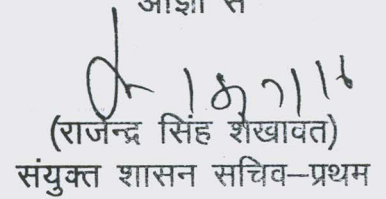 आज्ञा से
(राजेन्द्र सिंह शेखावत)
संयुक्त शासन सचिव–प्रथम